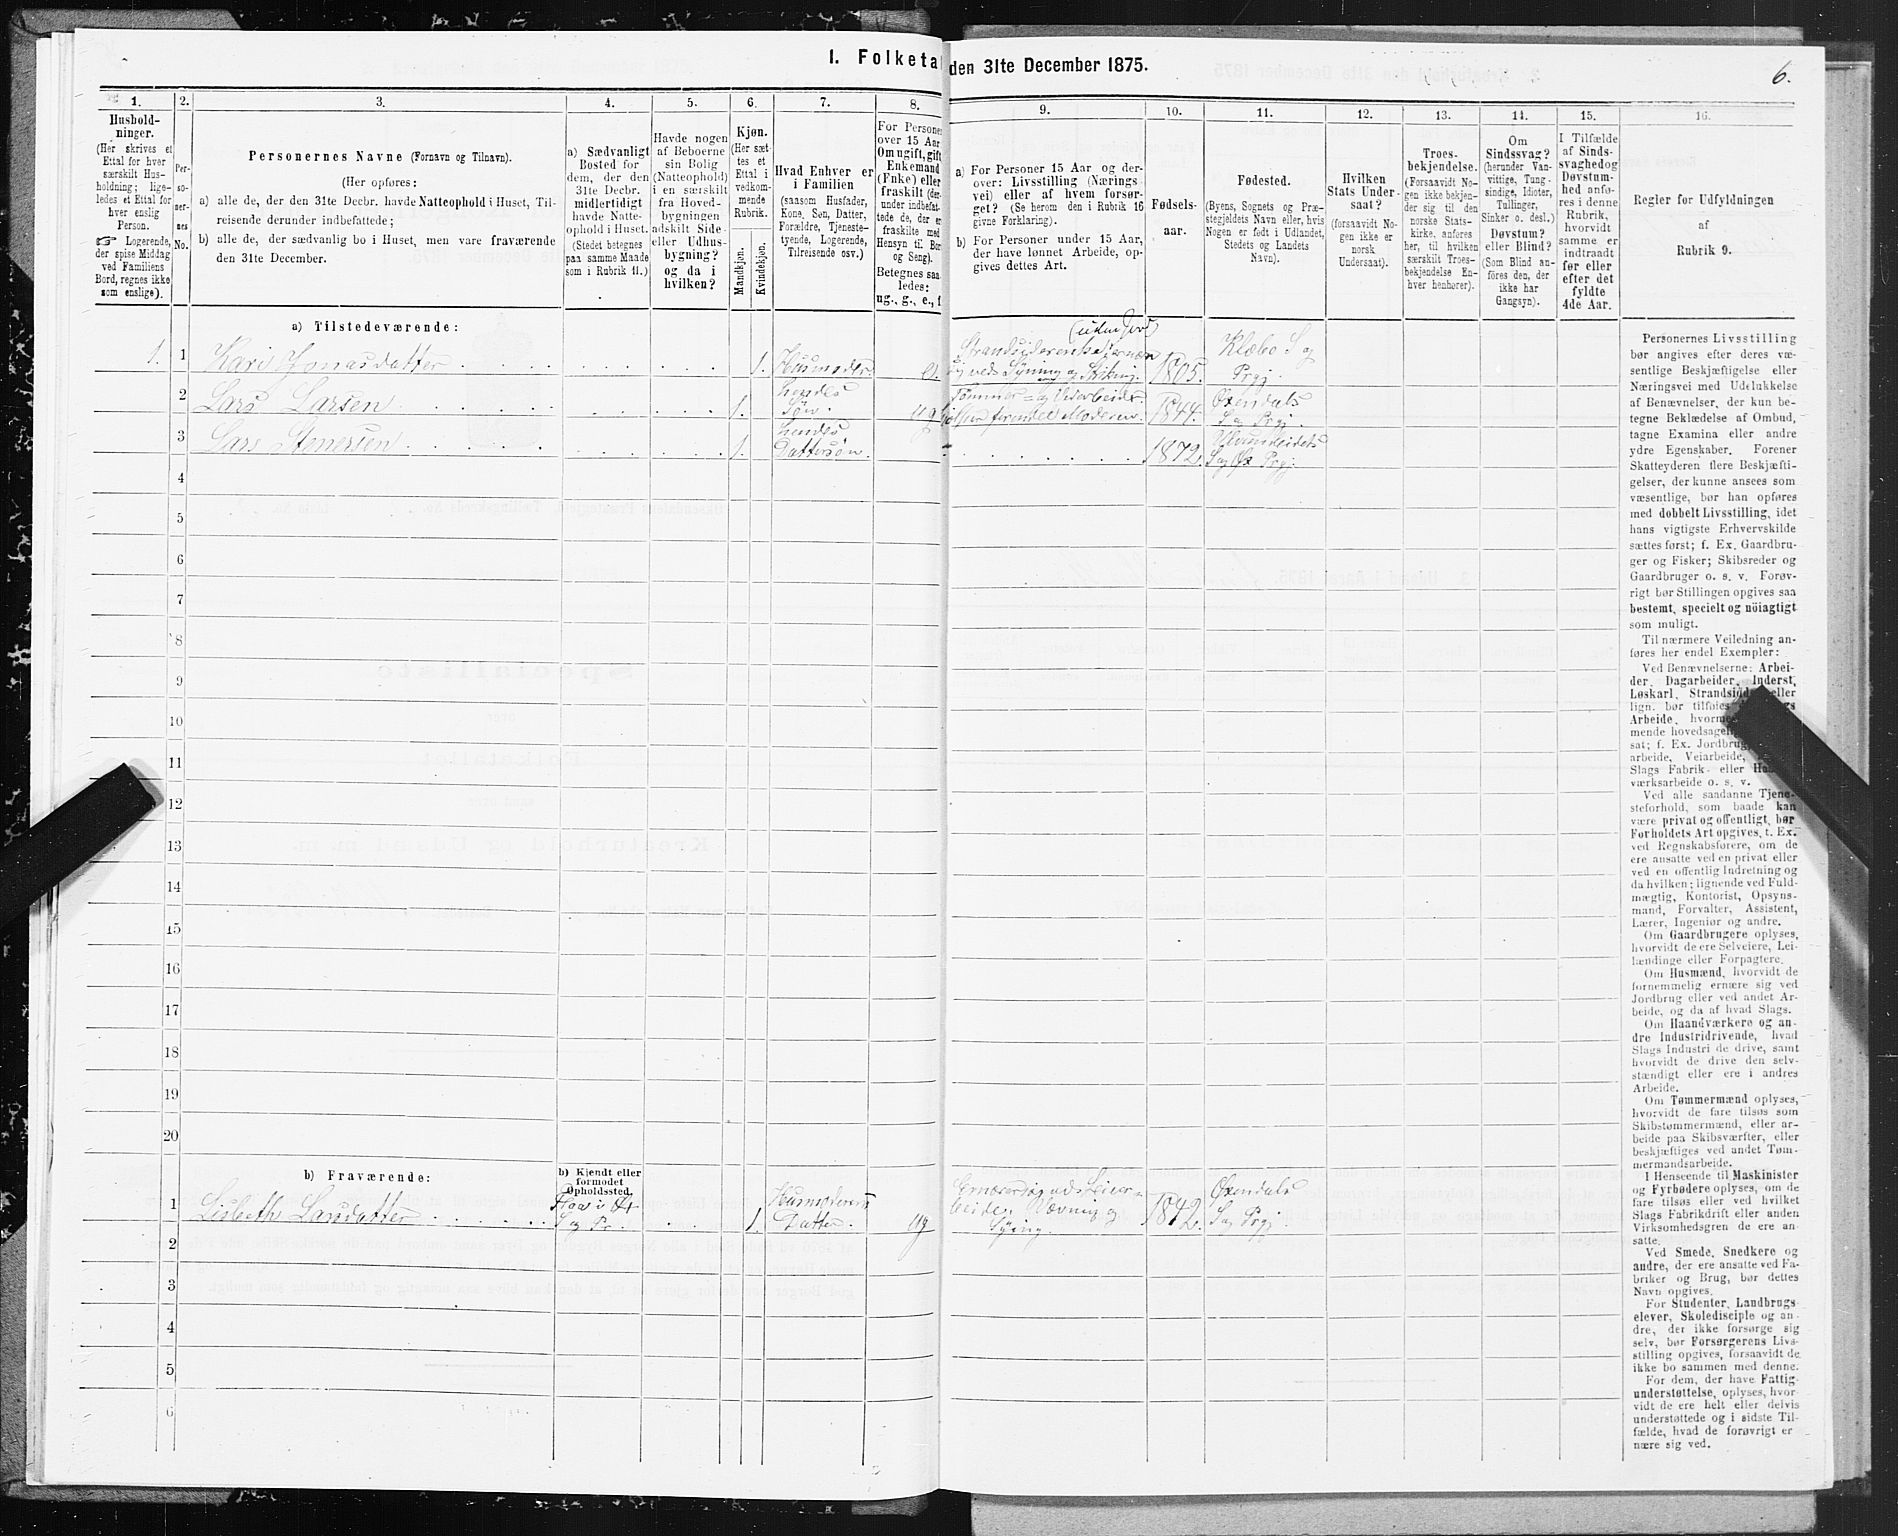 I. Folketa den 31te December 1875.
6.
1.
Hushold-
ninger.
(Her skrives et
Ettal for hver
særskilt Hus-
holdning; lige-
ledes et Ettal for
hver enslig
Person.
☞ Logerende,
der spise Middag
ved Familiens
Bord, regnes ikke
som enslige).
2.
Per-
so-
ner-
nes
No.
3.
Personernes Navne (Fornavn og Tilnavn).
(Her opføres:
a) alle de, der den 31te Decbr. havde Natteophold i Huset, Til-
reisende derunder indbefattede;
b) alle de, der sædvanlig bo i Huset, men vare fraværende
den 31te December.
4.
a) Sædvanligt
Bosted for
dem, der den
31te Decbr.
midlertidigt
havde Natte-
ophold i Huset.
(Stedet betegnes
paa samme Maade
som i Rubrik 11.)
5.
Havde nogen
af Beboerne
sin Bolig
(Natteophold)
i en særskilt
fra Hoved-
bygningen
adskilt Side-
eller Udhus-
bygning?
og da i
hvilken?
6.
Kjøn.
(Her sæt-
tes et
Ettal i
vedkom-
mende
Rubrik.
Mandkjøn.
Kvindekjøn.
7.
Hvad Enhver er
i Familien
(saasom Husfader,
Kone, Søn, Datter,
Forældre, Tjeneste-
tyende, Logerende,
Tilreisende osv.)
8.
For Persone
over 15 Aar
Om ugift, gift
Enkemand
(Enke) eller
fraskilt (der-
under indbefat-
tede de, der er
fraskilte med
Hensyn til Bor
og Seng).
Betegnes saa
ledes:
ug., g., e., f
9.
a) For Personer 15 Aar og der-
over: Livsstilling (Nærings
vei) eller af hvem forsør-
get? (Se herom den i Rubrik 16
givne Forklaring).
b) For Personer under 15 Aar,
der have lønnet Arbeide, op-
gives dettes Art.
10.
Fødsels-
aar.
11.
Fødested.
(Byens, Sognets og Præ-
stegjeldets Navn eller, hvis
Nogen er født i Udlandet,
Stedets og Landets
Navn).
12.
Hvilken
Stats Under-
saat?
(forsaavidt No-
gen ikke er
norsk
Undersaat).
13.
Troes-
bekjendelse.
(Forsaavidt No-
gen ikke bekjen-
der sig til den
norske Stats-
kirke, anføres
her, til hvilken
særskilt Troes-
bekjendelse En-
hver henhører).
14.
Om
Sindssvag?
(herunder Van-
vittige, Tung-
sindige, Idioter,
Tullinger,
Sinker o. desl.)
Døvstum?
eller Blind?
(Som Blind an-
føres den, der
ikke har
Gangsyn).
15.
I Tilfælde
af Sinds-
svaghed og
Døvstum-
hed anfø-
res i denne
Rubrik,
hvorvidt
samme er
indtraadt
før eller
efter det
fyldte
4de Aar.
16.
Regler for Udfyldningen
af
Rubrik 9.
a) Tilstedeværende:
1. 1 Kari Jonasdatter 1. Husmoder e. (uden Jord) Strandsidderenke Ernær sig ved Syning og Strikning. 1805. Klæbo S og Prgj.
2 Lars Larsen 1. hendes Søn ug Tømmer- og Veiarbeider 1844. Øxendals S og Prgj.
3 Lars Stenersen 1. hendes Dattersøn 1872. S og Prgj.
4
5
6
7
8
9
10
11
12
13
14
15
16
17
18
19
20
b) Fraværende:
b) Kjendt eller
formodet
Opholdssted.
1 Lisbeth Larsdatter S og Pr. 1. Husmoderens Datter. ug Ernærer sig ved Veverbeide, Vævning og Syning. 1842. Øxendals S og Prgj
2
3
4
5
6
Personernes Livsstilling
bør angives efter deres væ-
sentlige Beskjæftigelse eller
Næringsvei med Udelukkelse
af Benævnelser, der kun be-
tegne Beklædelse af Ombud,
tagne Examina eller andre
ydre Egenskaber. Forener
Skatteyderen flere Beskjæfti-
gelser, der kunne ansees som
væsentlige, bør han opføres
med dobbelt Livsstilling, idet
hans vigtigste Erhvervskilde
sættes først; f. Ex. Gaardbru-
ger og Fisker; Skibsreder og
Gaardbruger o. s. v. Forøv-
rigt bør Stillingen opgives saa
bestemt, specielt og nöiagtigt
som muligt.
Til nærmere Veiledning an-
føres her endel Exempler:
Ved Benævnelserne: Arbei-
der, Dagarbeider, Inderst,
Løskarl, Strandsidd eller
lign. bør tilføies
Arbeide, hvorme
mende hovedsagel
sat; f. Ex. Jordbrug
arbeide, Veiarbeide,
Slags Fabrik- eller Ha
værksarbeide o. s. v.
Ved alle saadanne Tjene-
steforhold, som baade kan
være privat og offentligt, bør
Forholdets Art opgives, t. Ex.
ved Regnskabsførere, om de
ere ansatte ved en privat eller
ved en offentlig Indretning og
da hvilken; lignende ved Fuld-
mægtig, Kontorist, Opsyns-
mand, Forvalter, Assistent,
Lærer, Ingeniør og andre.
Om Gaardbrugere oplyses,
hvorvidt de ere Selveiere, Lei-
lændinge eller Forpagtere.
Om Husmænd, hvorvidt de
fornemmelig ernære sig ved
Jordbrug eller ved andet Ar-
beide, og da af hvad Slags.
Om Haandværkere og an-
dre Industridrivende, hvad
Slags Industri de drive, samt
hvorvidt de drive den selv-
stændigt eller ere i andres
Arbeide.
Om Tømmermænd oplyses,
hvorvidt de fare tilsøs som
Skibstømmermænd, eller ar-
beide paa Skibsværfter, eller
beskjæftiges ved andet Tøm-
mermandsarbeide.
I Henseende til Maskinister
og Fyrbødere oplyses, om de
fare tilsøs eller ved hvilket
Slags Fabrikdrift eller anden
Virksomhedsgren de ere an-
satte.
Ved Smede, Snedkere og
andre, der ere ansatte ved Fa-
briker og Brug, bør dettes
Navn opgives.
For Studenter, Landbrugs-
elever, Skoledisciple og an-
dre, der ikke forsørge sig
selv, bør Forsørgerens Livs-
stilling opgives, forsaavidt de
ikke bo sammen med denne.
For dem, der have Fattig-
understøttelse, oplyses, hvor-
vidt de ere helt eller delvis
understøttede og i sidste Til-
fælde, hvad de forøvrigt er
nære sig ved.